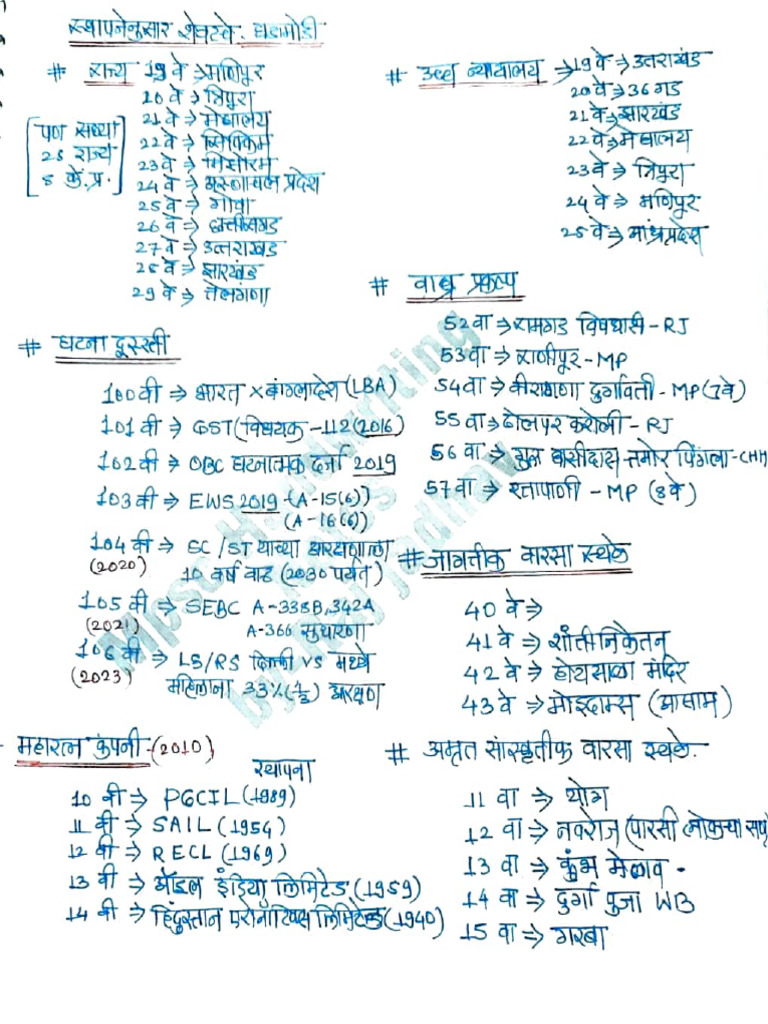 स्थापनेनुसार शेवटचे घडामोडी
# राज्य 19 वे ⇒ मणिपूर
20 वे ⇒ त्रिपुरा
21 वे ⇒ मेघालय
22 वे ⇒ सिक्किम
23 वे ⇒ मिझोरम
24 वे ⇒ अरुणाचल प्रदेश
25 वे ⇒ गोवा
26 वे ⇒ छत्तीसगड
27 वे ⇒ उत्तराखंड
28 वे ⇒ झारखंड
29 वे ⇒ तेलंगणा
[पण सध्या
28 राज्य
8 कें.प्र.]
# घटना दूरुस्ती
100 वी ⇒ भारत × बांग्लादेश (LBA)
101 वी ⇒ GST (विधयक - 112 (2016)
102 वी ⇒ OBC घटनात्मक दर्जा 2019
103 वी ⇒ EWS 2019 - (A-15(6))
(A-16(6))
104 वी ⇒ SC/ST याच्या आरक्षणाला
(2020) 10 वर्ष वाढ (2030 पर्यंत)
105 वी ⇒ SEBC A-338B, 342A
(2021) A-366 सुधारणा
106 वी ⇒ LS/RS दिल्ली VS मध्ये
(2023) महिलाना 33% (1/3) आरक्षण
महारत्न कंपनी - (2010)
स्थापना
10 वी ⇒ PGCIL (1989)
11 वी ⇒ SAIL (1954)
12 वी ⇒ RECL (1969)
13 वी ⇒ ऑइल इंडिया लिमिटेड (1959)
14 वी ⇒ हिंदुस्तान एरोनॉटिक्स लिमिटेड (1940)
# उच्च न्यायालय ⇒ 19 वे ⇒ उत्तराखंड
20 वे ⇒ 36 गड
21 वे ⇒ झारखंड
22 वे ⇒ मेघालय
23 वे ⇒ त्रिपुरा
24 वे ⇒ मणिपूर
25 वे ⇒ आंध्रप्रदेश
# वाघ प्रकल्प
52 वा ⇒ रामगड विषधारी - RJ
53 वा ⇒ राणीपूर - MP
54 वा ⇒ वीरांगणा दुर्गावती - MP (7 वे)
55 वा ⇒ ढोलपूर करोली - RJ
56 वा ⇒ गुरु घासीदास तमोर पिंगला - CHH
57 वा ⇒ रतापाणी - MP (8 वे)
# जागतीक वारसा स्थळे
40 वे ⇒
41 वे ⇒ शांतीनिकेतन
42 वे ⇒ होयसाळा मंदिर
43 वे ⇒ मोइदाम्स (आसाम)
# अमृत सांस्कृतीक वारसा स्थळे.
11 वा ⇒ योग
12 वा ⇒ नवरोज (पारसी लोकांच्या
13 वा ⇒ कुंभ मेळाव -
14 वा ⇒ दुर्गा पुजा WB
15 वा ⇒ गरबा